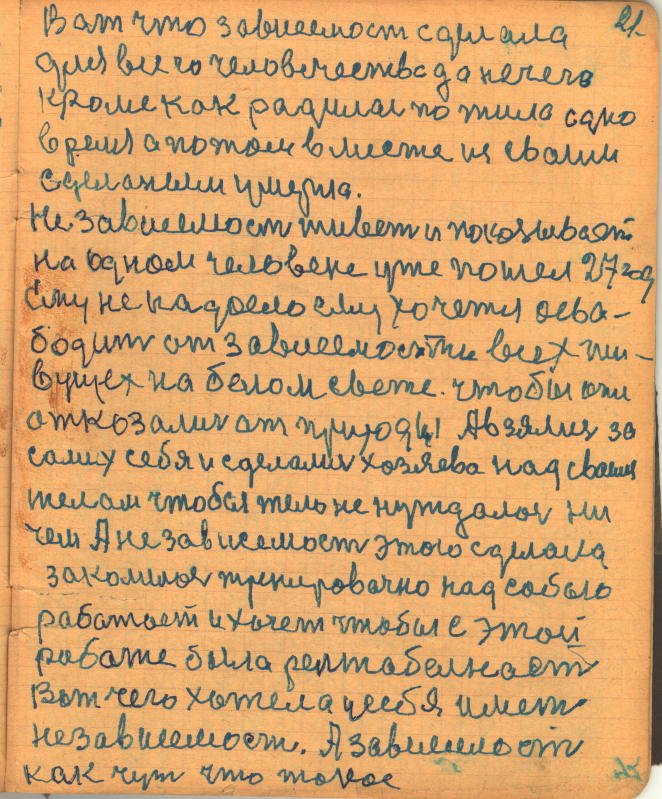 21.
Вот что зависемост сделала
для всего человечества да нечего
кроме как радилас по жила одно
время а потом вместе из сваим
сделаным умерла.
Независемост живет и показывает
на одном человеке уже пошел 27 год
ему не надоело ему хочется осва-
бодит от зависемостти всех жи-
вущех на белом свете. чтобы они
атказалис от природы А взялис за
самих себя и сделалис хозяева над сваим
телом чтобы тело не нуждалос ни
чем А независемост этого сделала
закалилос тренировачно над собою
работает и хочет чтобы с этой
работе была рентабелност
Вот чего хотела у себя имет
независемост. А зависимост
как чут что такое